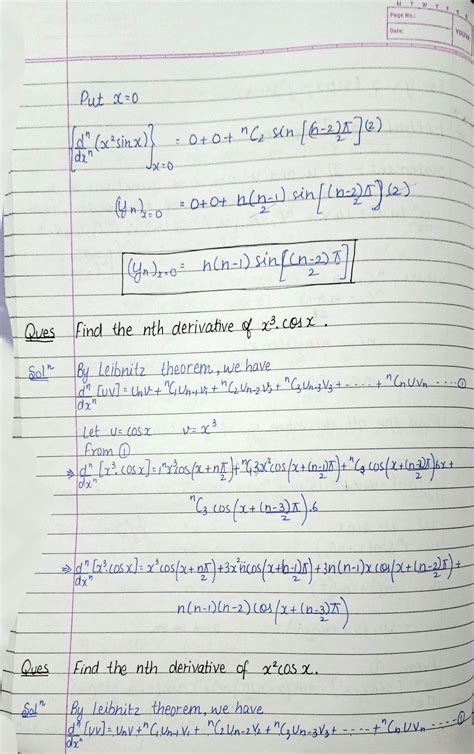 M T W T F S S
Page No.:
Date:
YOUVA
Put x=0
{d^n/dx^n (x² sin x)}_{x=0} = 0+0+ ⁿC₂ sin [(n-2)π/2] (2)
(yₙ)_{x=0} = 0+0+ n(n-1)/2 sin [(n-2)π/2] (2)
(yₙ)_{x=0} = n(n-1) sin [(n-2)π/2]
Ques Find the nth derivative of x³.cos x.
Solⁿ By Leibnitz theorem, we have
d^n/dx^n [uv] = uₙv + ⁿC₁uₙ₋₁v₁ + ⁿC₂uₙ₋₂v₂ + ⁿC₃uₙ₋₃v₃ + ----- + ⁿCₙuvₙ ----- ①
Let u = cos x v = x³
From ①
⇒ d^n/dx^n [x³.cos x] = x³cos(x+nπ/2) + ⁿC₁3x²cos(x+(n-1)π/2) + ⁿC₂ cos(x+(n-2)π/2)6x +
ⁿC₃ cos(x+(n-3)π/2).6
⇒ d^n/dx^n [x³.cos x] = x³cos(x+nπ/2) + 3x²n cos(x+(n-1)π/2) + 3n(n-1)x cos(x+(n-2)π/2) +
n(n-1)(n-2) cos(x+(n-3)π/2)
Ques Find the nth derivative of x²cos x.
Solⁿ By Leibnitz theorem, we have
d^n/dx^n [uv] = uₙv + ⁿC₁uₙ₋₁v₁ + ⁿC₂uₙ₋₂v₂ + ⁿC₃uₙ₋₃v₃ + ----- + ⁿCₙuvₙ ----- ①